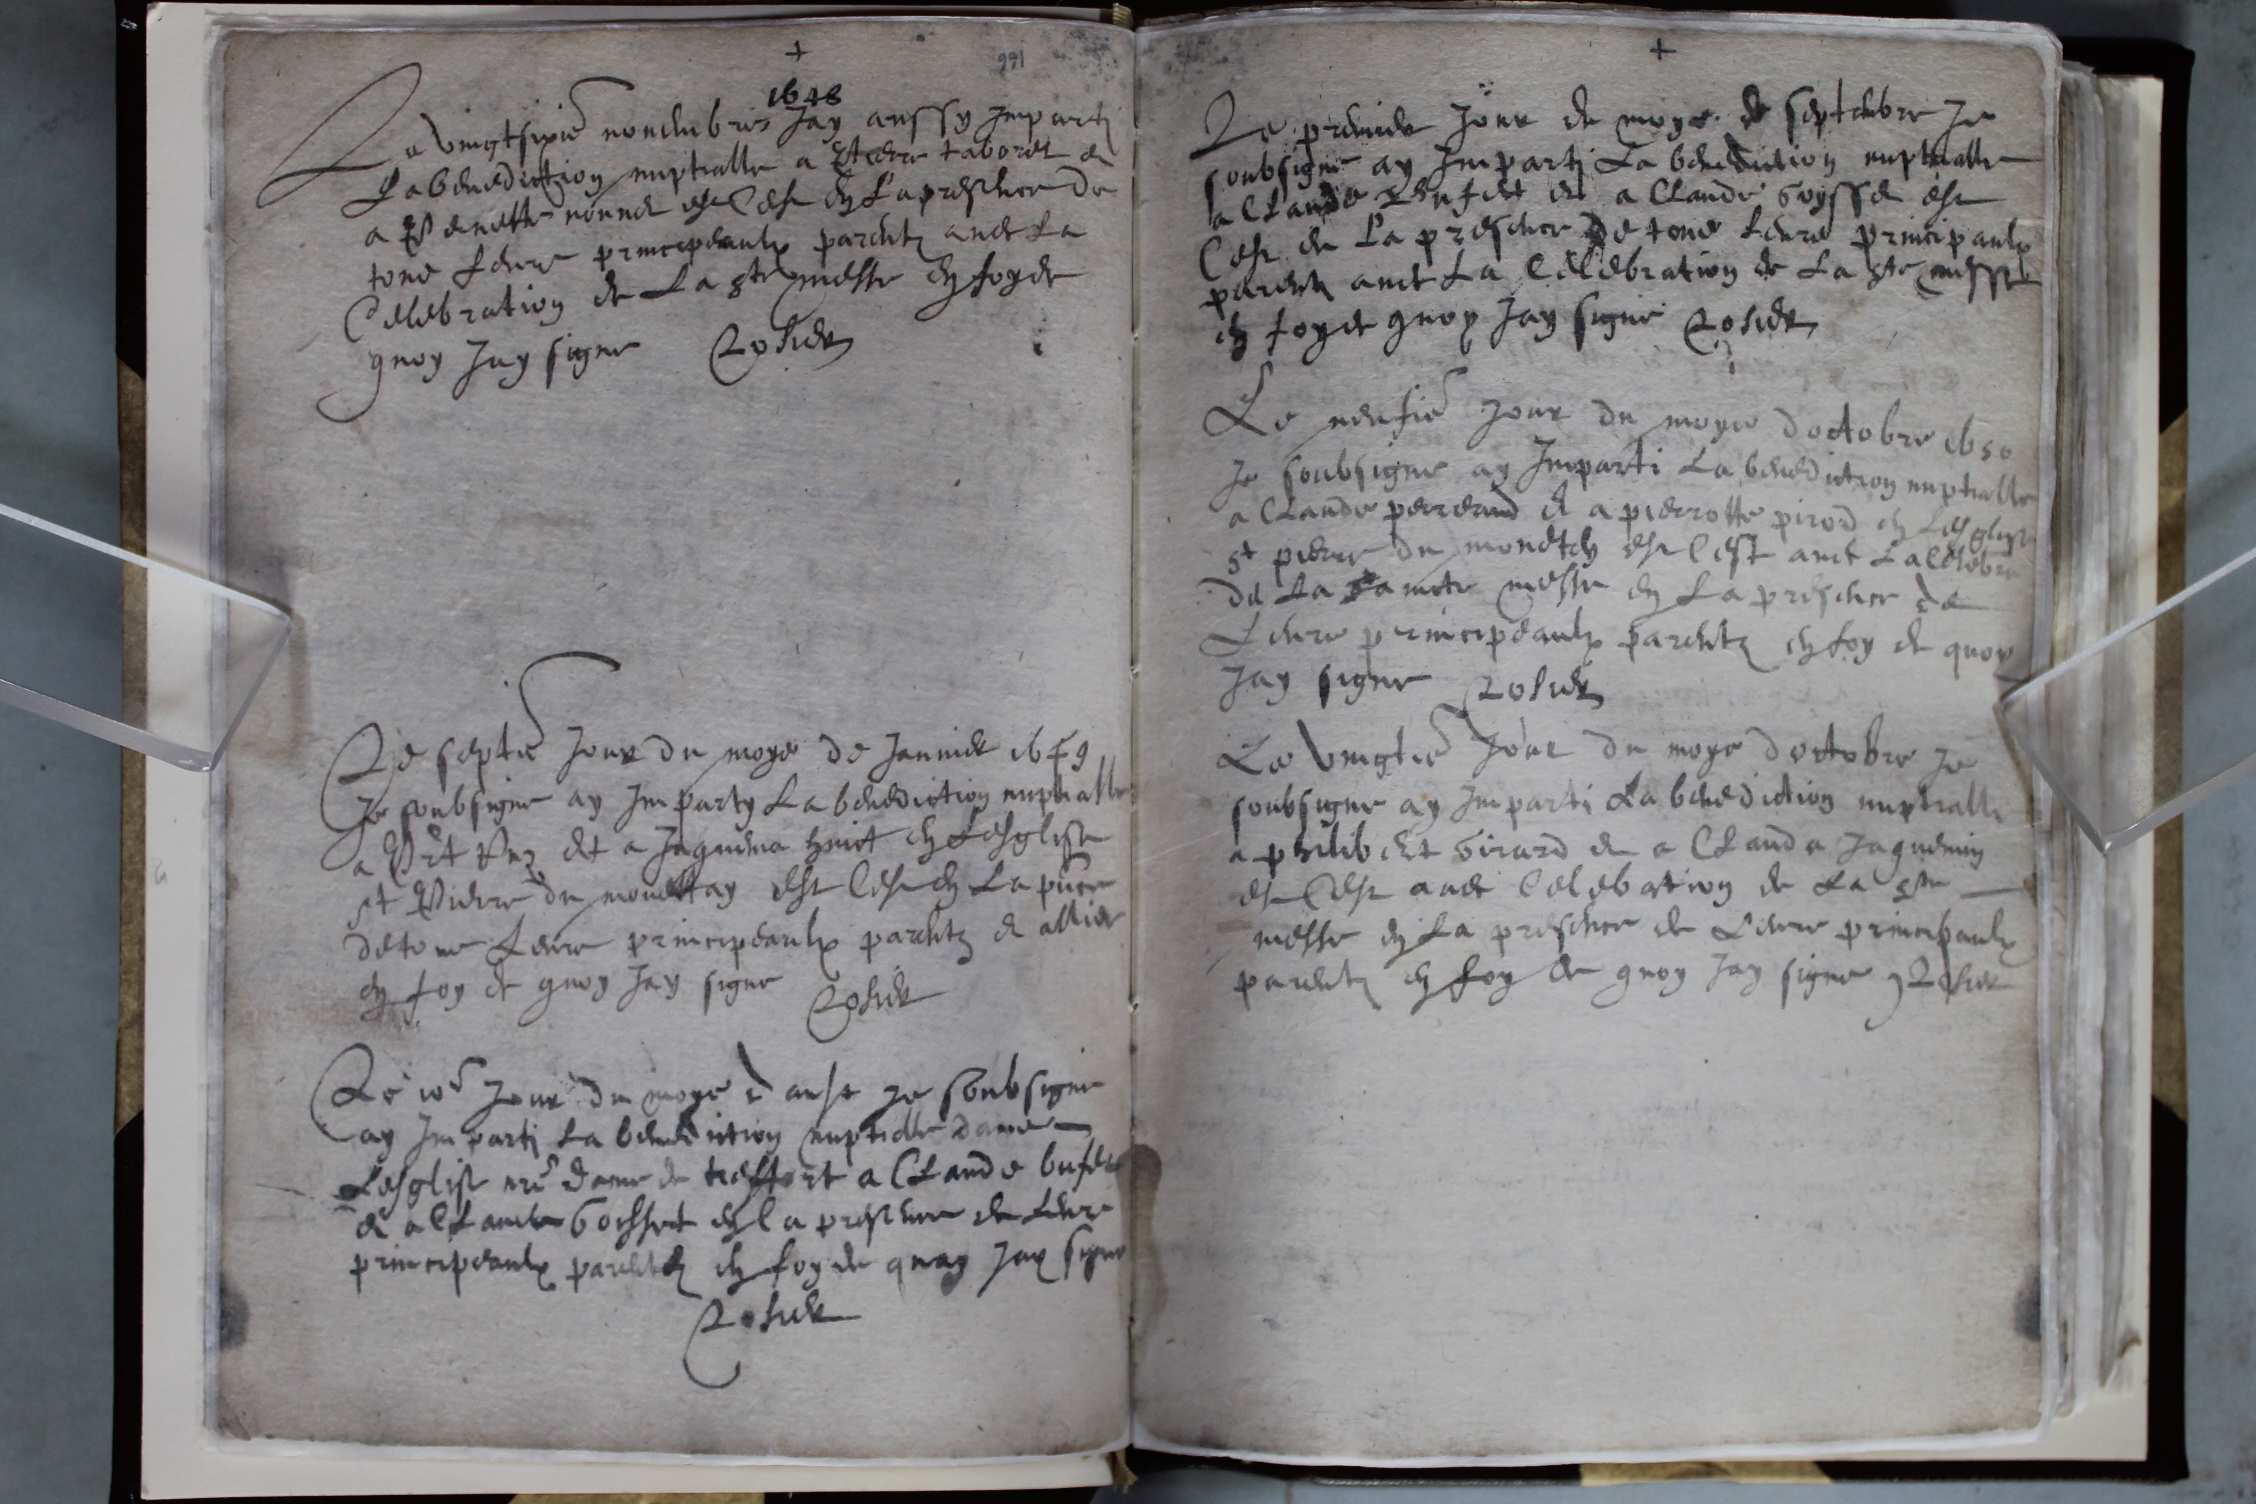 +
991
1648
Le vingtsixie novembre Jay aussy Imparti
La benediction nuptialle a taboret et
a Benette est Cest en La presence de
tous Leurs principeaulx parents avec La
Celebration de La ste messe en foy de
quoy Jay signe Rosier
Le septie Jour du moys de Janvier 1649
Je soubsigne ay Imparty La benediction nuptialle
a et a huict en Lesglise
st Pierre du est Cest en La pnce
de tous Leurs principeaulx parents et allies
en foy de quoy Jay signe Rosier
Le Jour du moys d aust Je soubsigne
ay Imparti La benediction nuptialle dans
Lesglise nre Dame de treffort a Claude
et a Claude en La presence de Leurs
principeaulx parents en foy de quoy Jay signe
Rosier
+
Le premier Jour du moys de septembre Je
soubsigne ay Imparti La benediction nuptialle
a Claude et a Claude est
Cest en La presence de tous Leurs principaulx
parents avec La Celebration de La ste messe
en foy de quoy Jay signe Rosier
Le neufie Jour du moys doctobre 1650
Je soubsigne ay Imparti La benediction nuptialle
a Claude perreaud et a pierrotte pirod en Lesglise
st pierre du est Cest avec La Celebra
de La saincte messe en La presence de
Leurs principeaulx parents en foy de quoy
Jay signe Rosier
Le vingtie Jour du moys doctobre Je
soubsigne ay Imparti La benediction nuptialle
a philibert Girard et a Clauda Jaquemin
et Cest avec Celebration de La ste
messe en La presence de Leurs principaulx
parents en foy de quoy Jay signe Rosier